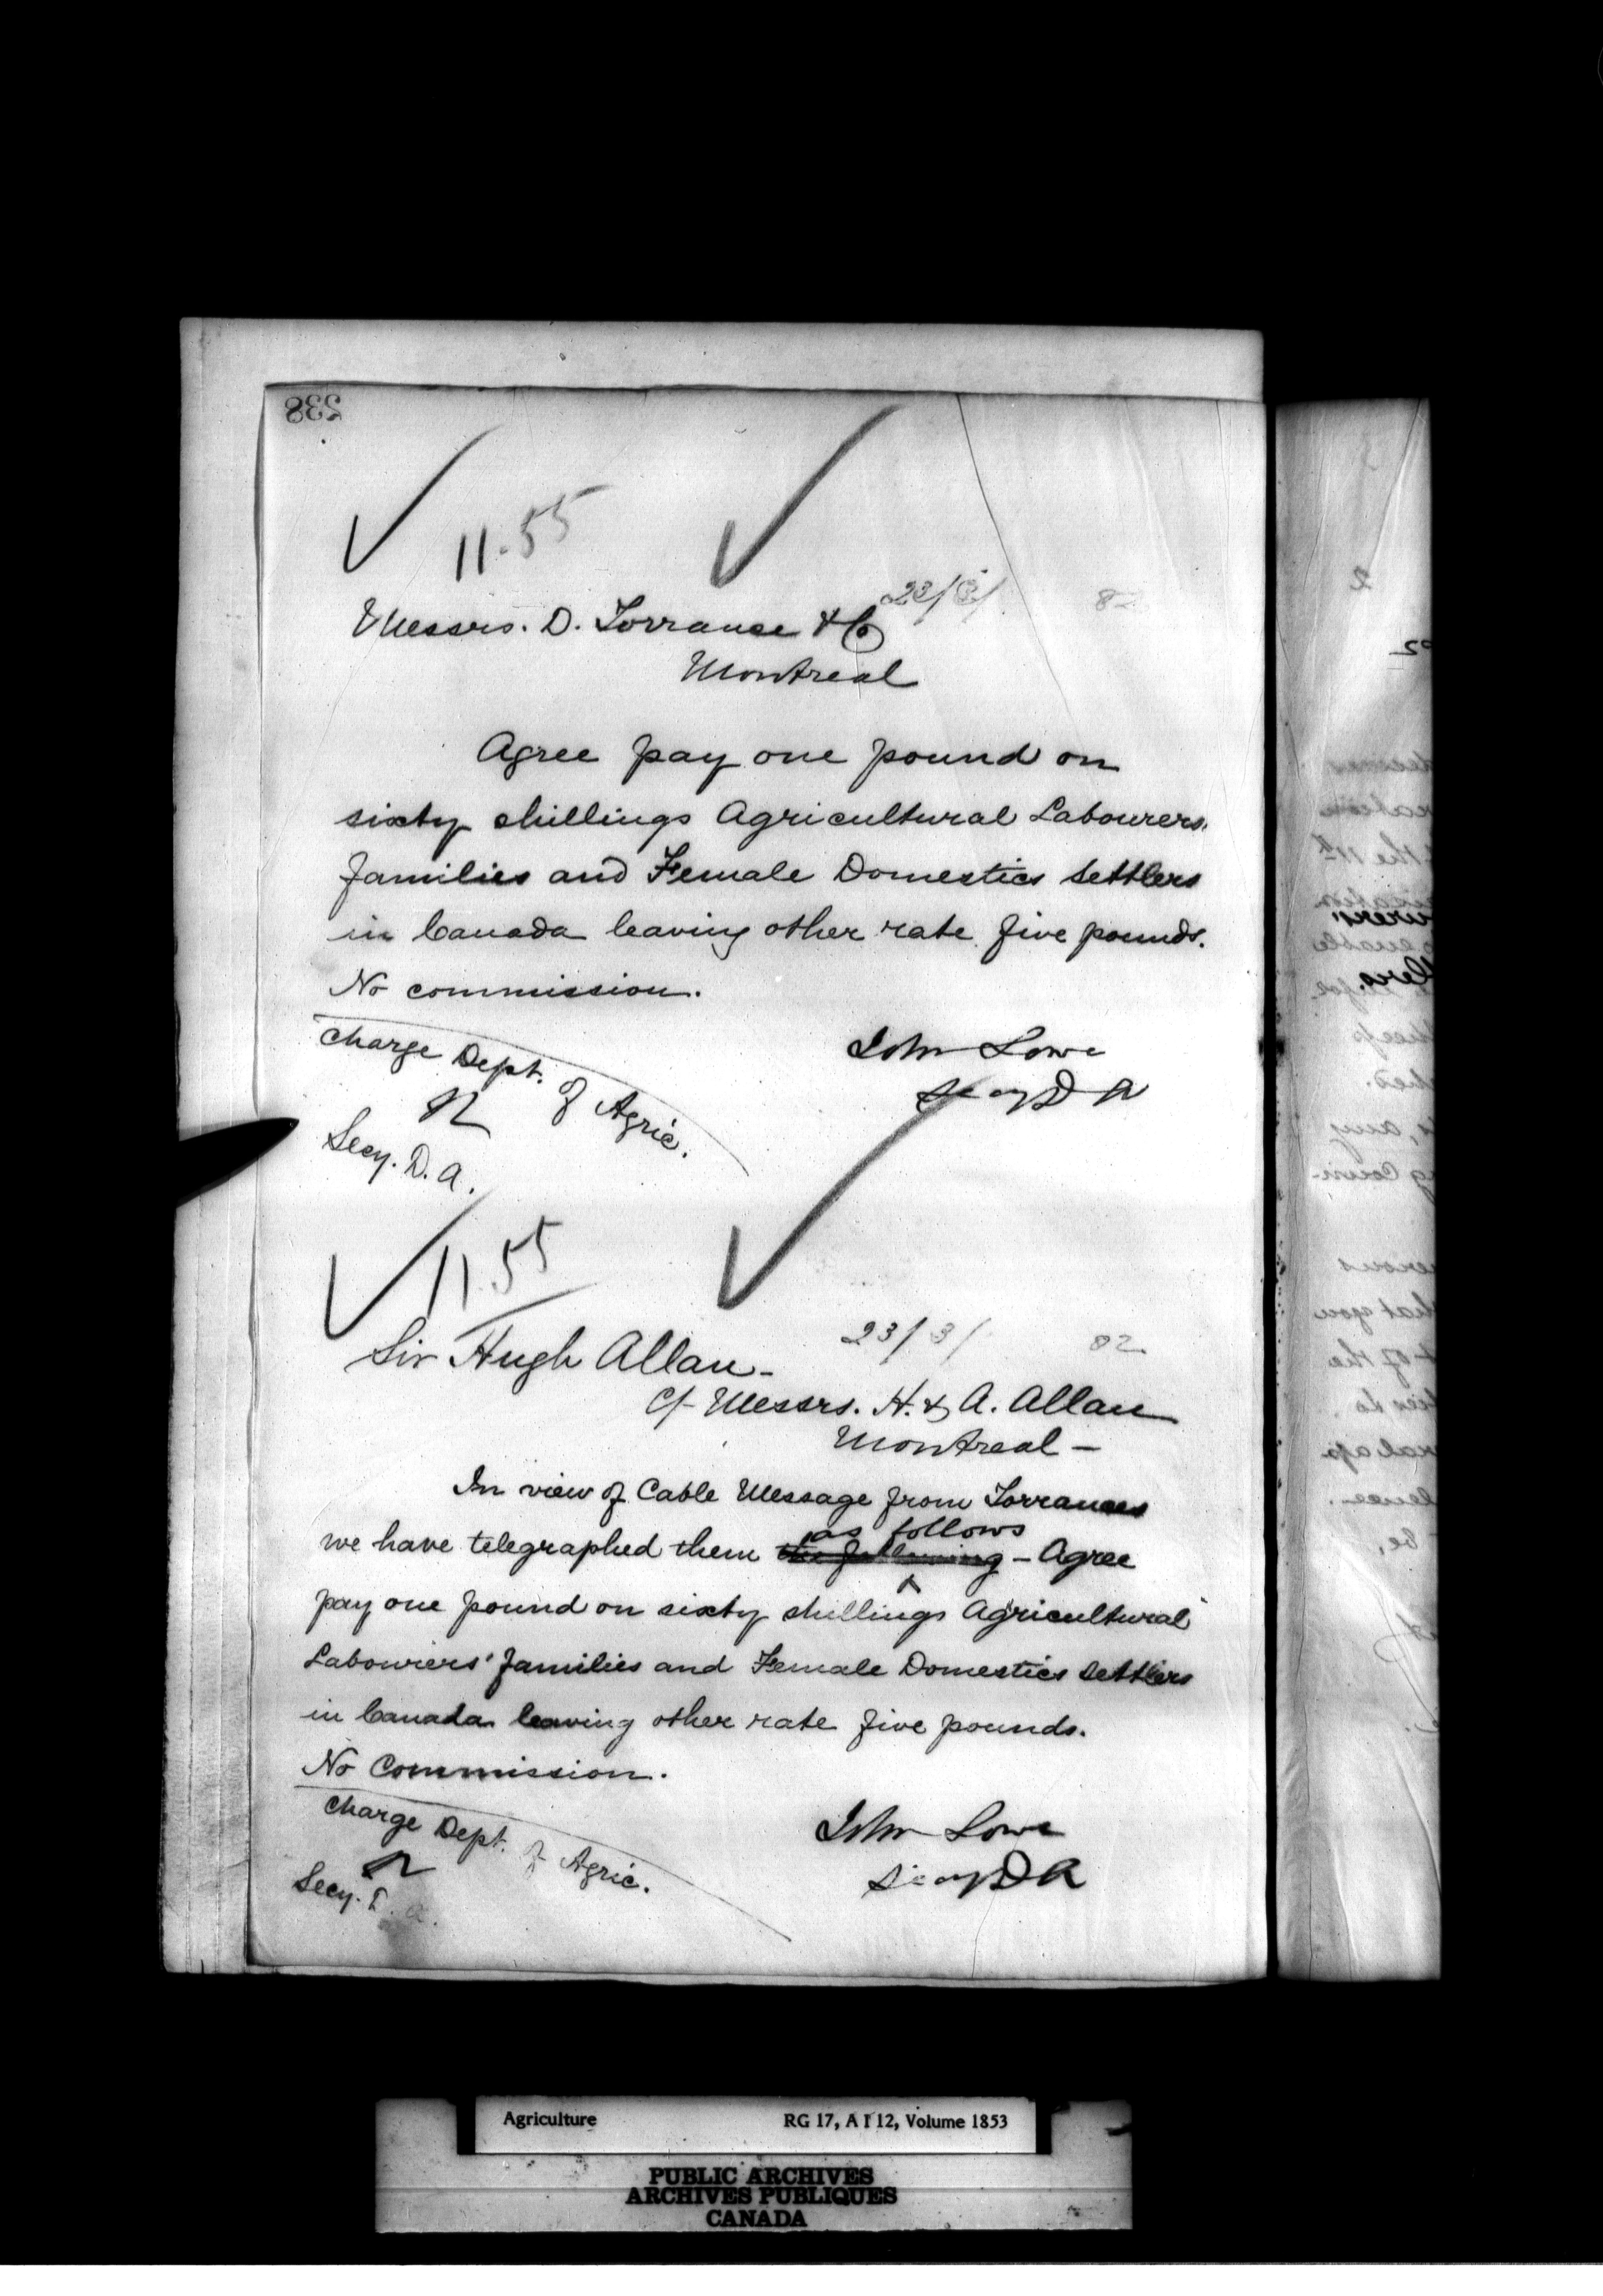 238
11.55
23/3/ 82
Messrs. D. Torrance & Co
Montreal
Agree pay one pound on
sixty shillings Agricultural Labourers'
families and Female Domestics settlers
in Canada leaving other rate five pounds.
No commission.
John Lowe
Secy D A
Charge Dept. of Agric.
Secy. D. A.
11.55
23/3/ 82
Sir Hugh Allan -
C/- Messrs. H. & A. Allan
Montreal -
In view of Cable Message from Torrances
as follows
we have telegraphed them the following - Agree
pay one pound on sixty shillings Agricultural
Labourers' families and Female Domestics settlers
in Canada leaving other rate five pounds.
No Commission.
John Lowe
Secy D A
Charge Dept. of Agric.
Secy. D. A.
Agriculture RG 17, A I 12, Volume 1853
PUBLIC ARCHIVES
ARCHIVES PUBLIQUES
CANADA